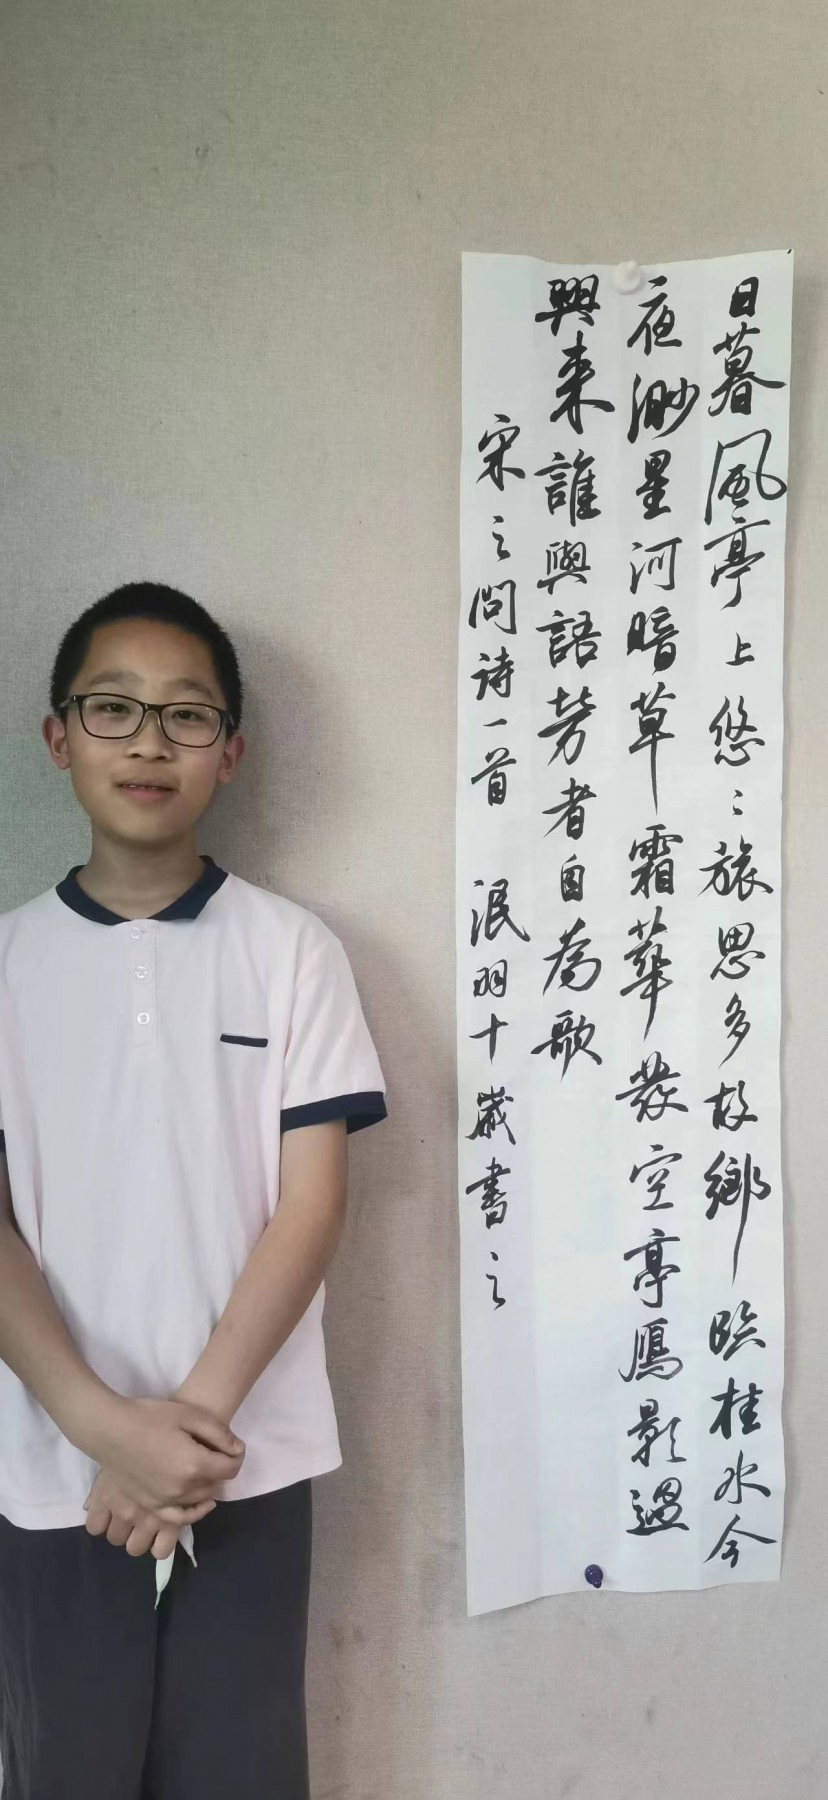 日暮風亭上悠〻旅思多故鄉臨桂水今
夜渺星河暗草霜華發空亭鴈影過
興来誰與語勞者自為歌
宋之問詩一首 泯羽十歲書之